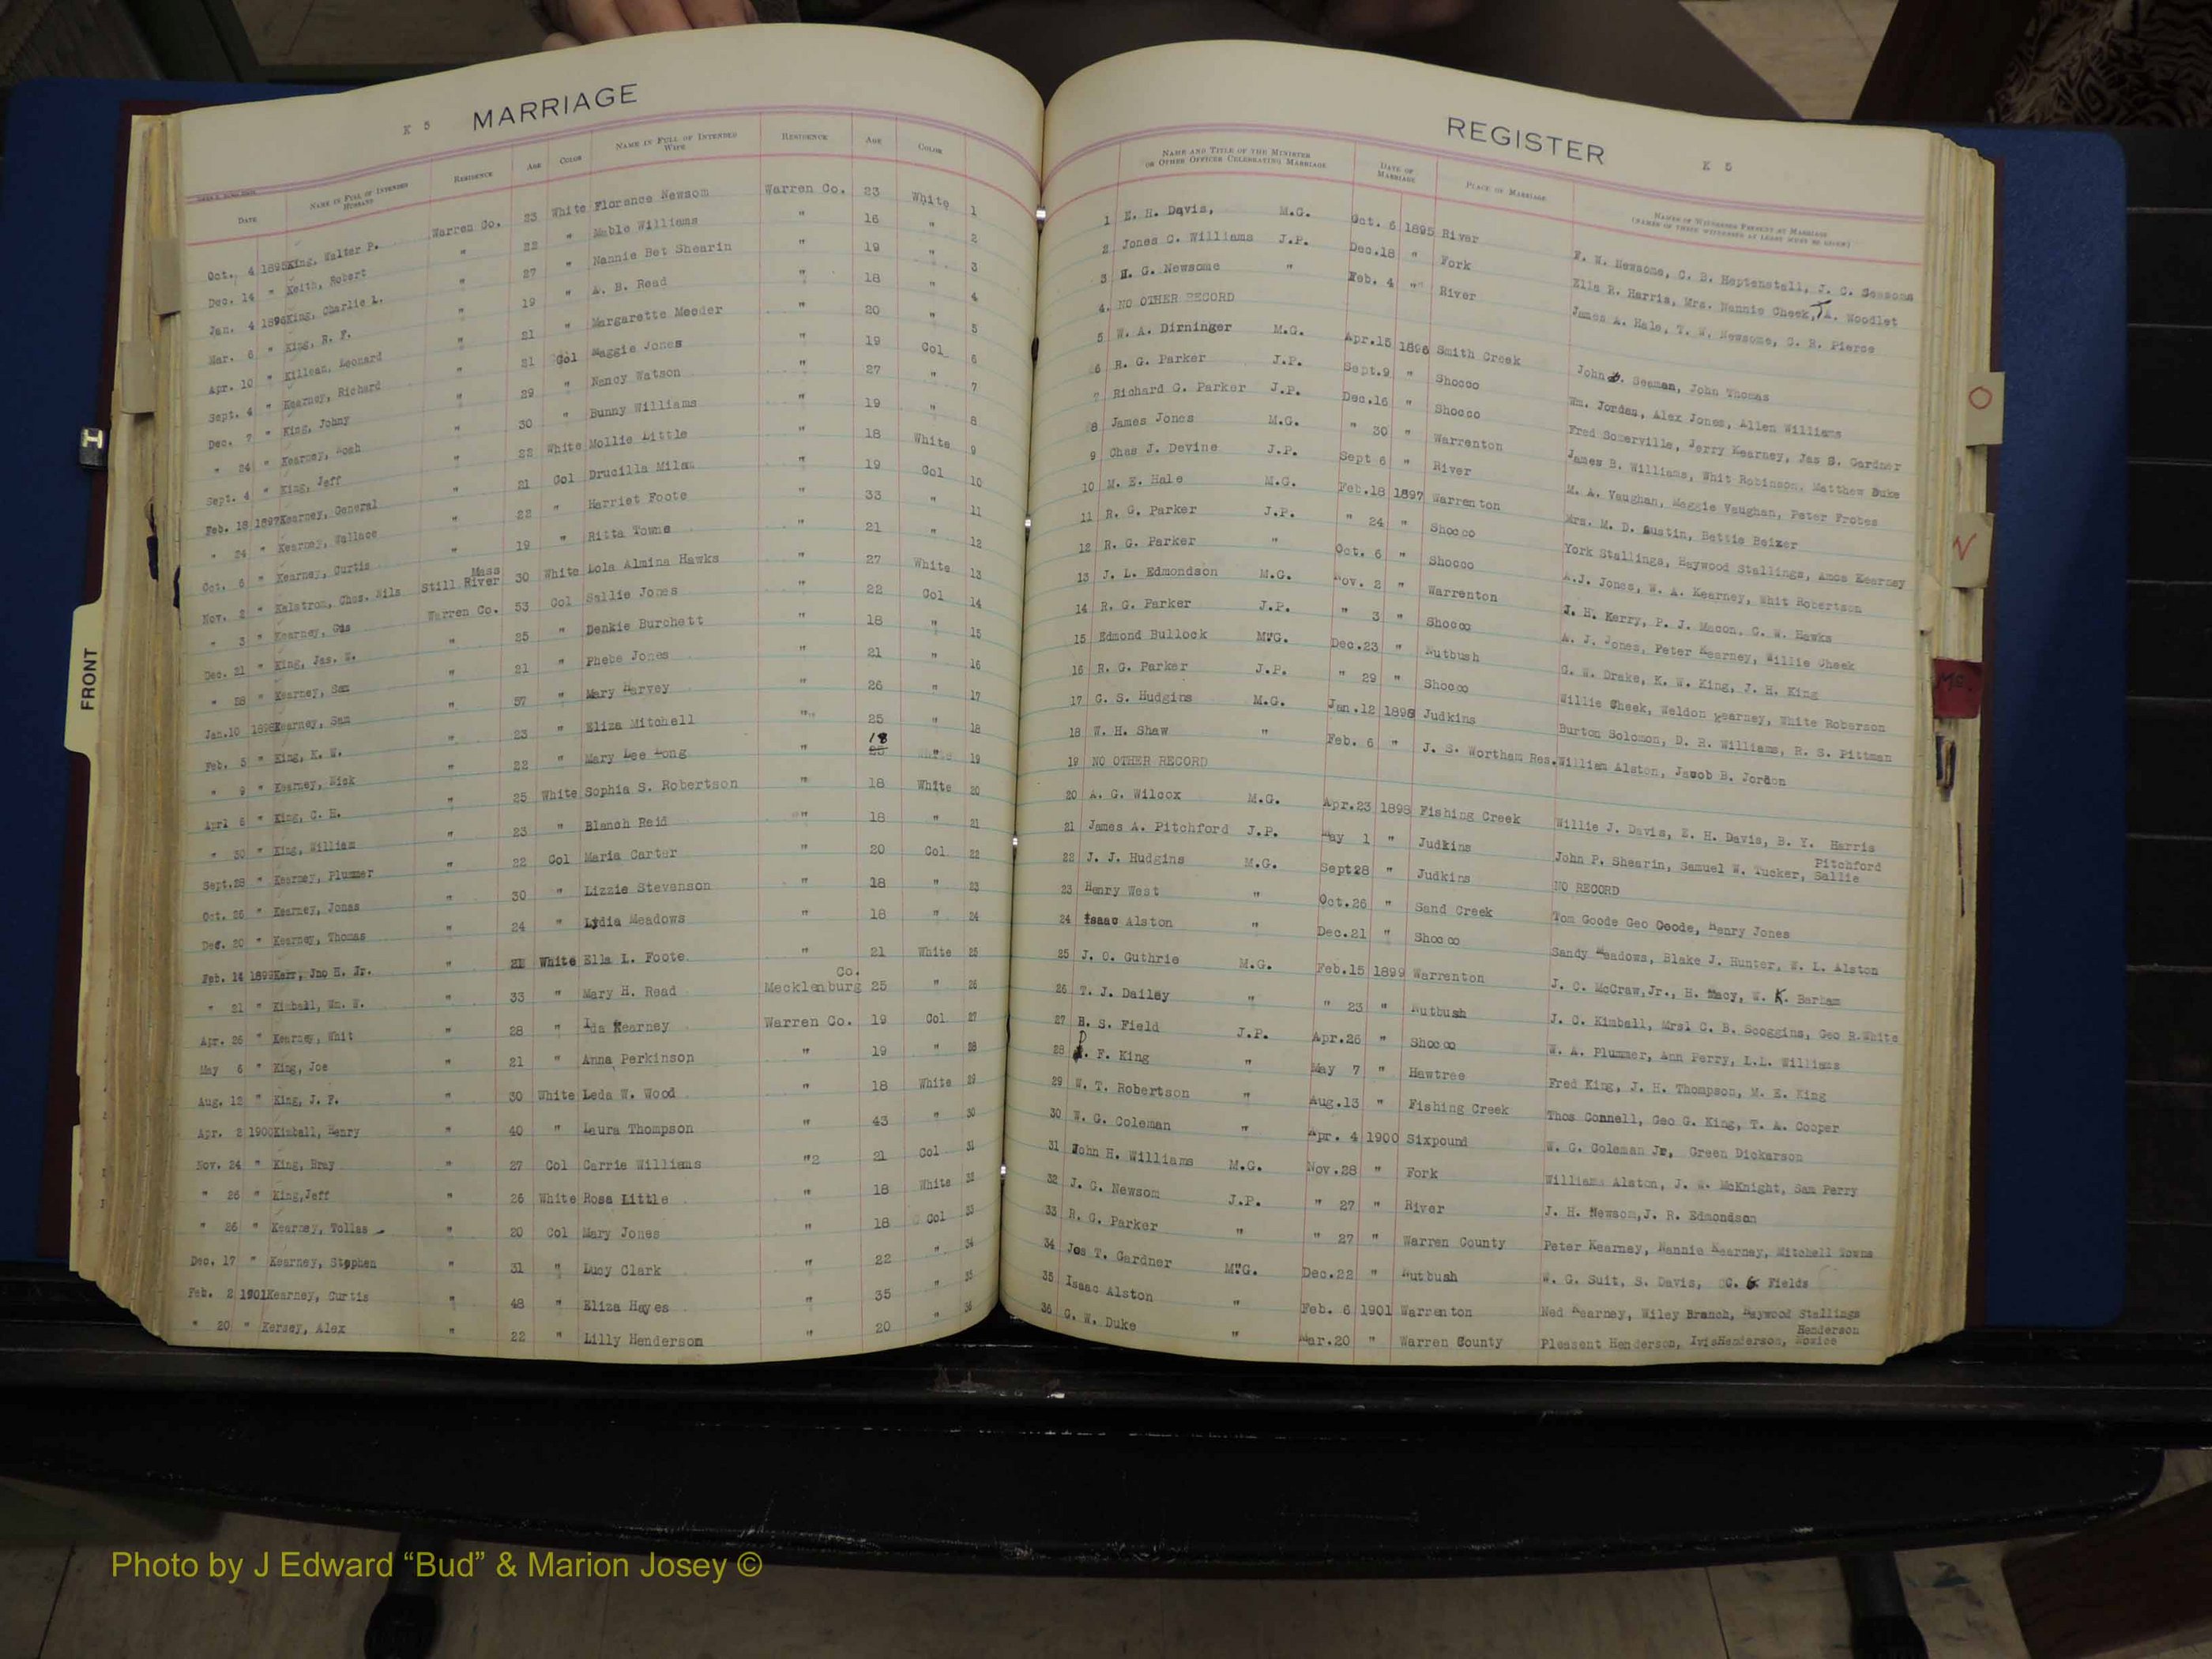 K 5 MARRIAGE
DATE NAME IN FULL OF INTENDED HUSBAND RESIDENCE AGE COLOR NAME IN FULL OF INTENDED WIFE RESIDENCE AGE COLOR
Oct. 4 1895 King, Walter P. Warren Co. 23 White Florence Newsom Warren Co. 23 White 1
Dec. 14 " Keith, Robert " 22 " Mable Williams " 16 " 2
Jan. 4 1896 King, Charlie L. " 27 " Nannie Bet Shearin " 19 " 3
Mar. 6 " King, R. F. " 19 " A. B. Read " 18 " 4
Apr. 10 " Killean, Leonard " 21 " Margarette Meeder " 20 " 5
Sept. 4 " Kearney, Richard " 21 Col Maggie Jones " 19 Col 6
Dec. 7 " King, Johny " 29 " Nancy Watson " 27 " 7
" 24 " Kearney, Noah " 30 " Bunny Williams " 19 " 8
Sept. 4 " King, Jeff " 22 White Mollie Little " 18 White 9
Feb. 18 1897 Kearney, General " 21 Col Drucilla Milam " 19 Col 10
" 24 " Kearney, Wallace " 22 " Harriet Foote " 33 " 11
Oct. 6 " Kearney, Curtis " 19 " Ritta Towns " 21 " 12
Nov. 2 " Kalstrom, Chas. Nils Still River Mass 30 White Lola Almina Hawks " 27 White 13
" 3 " Kearney, Gus Warren Co. 53 Col Sallie Jones " 22 Col 14
Dec. 21 " King, Jas. W. " 25 " Denkie Burchett " 18 " 15
" 28 " Kearney, Sam " 21 " Phebe Jones " 21 " 16
Jan.10 1898 Kearney, Sam " 57 " Mary Harvey " 26 " 17
Feb. 5 " King, K. W. " 23 " Eliza Mitchell " 25 " 18
" 9 " Kearney, Nick " 22 " Mary Lee Long " 18 " 19
Aprl 6 " King, C. H. " 25 White Sophia S. Robertson " 18 White 20
" 30 " King, William " 23 " Blanch Reid " 18 " 21
Sept.28 " Kearney, Plummer " 22 Col Maria Carter " 20 Col 22
Oct. 26 " Kearney, Jonas " 30 " Lizzie Stevenson " 18 " 23
Dec. 20 " Kearney, Thomas " 24 " Lydia Meadows " 18 " 24
Feb. 14 1899 Kerr, Jno H. Jr. " 21 White Ella L. Foote " 21 White 25
" 21 " Kimball, Wm. W. " 33 " Mary H. Read Mecklenburg Co. 25 " 26
Apr. 26 " Kearney, Whit " 28 " Ida Kearney Warren Co. 19 Col 27
May 6 " King, Joe " 21 " Anna Perkinson " 19 " 28
Aug. 12 " King, J. F. " 30 White Leda W. Wood " 18 White 29
Apr. 2 1900 Kimball, Henry " 40 " Laura Thompson " 43 " 30
Nov. 24 " King, Bray " 27 Col Carrie Williams "2 21 Col 31
" 26 " King,Jeff " 26 White Rosa Little " 18 White 32
" 26 " Kearney, Tollas " 20 Col Mary Jones " 18 Col 33
Dec. 17 " Kearney, Stephen " 31 " Lucy Clark " 22 " 34
Feb. 2 1901 Kearney, Curtis " 48 " Eliza Hayes " 35 " 35
" 20 " Kersey, Alex " 22 " Lilly Henderson " 20 " 36
REGISTER K 5
NAME AND TITLE OF THE MINISTER OR OTHER OFFICER CELEBRATING MARRIAGE DATE OF MARRIAGE PLACE OF MARRIAGE NAMES OF WITNESSES PRESENT AT MARRIAGE
1 E. H. Davis, M.G. Oct. 6 1895 River F. W. Newsome, C. B. Heptenstall, J. C. Sessoms
2 Jones C. Williams J.P. Dec.18 " Fork Ella R. Harris, Mrs. Nannie Cheek, T A. Woodlet
3 H. G. Newsome " Feb. 4 " River James A. Hale, T. W. Newsome, C. R. Pierce
4. NO OTHER RECORD
5 W. A. Dirninger M.G. Apr.15 1896 Smith Creek John Seaman, John Thomas
6 R. G. Parker J.P. Sept.9 " Shocco Wm. Jordan, Alex Jones, Allen Williams
7 Richard G. Parker J.P. Dec.16 " Shocco Fred Somerville, Jerry Kearney, Jas S. Gardner
8 James Jones M.G. " 30 " Warrenton James B. Williams, Whit Robinson, Matthew Duke
9 Chas J. Devine J.P. Sept 6 " River M. A. Vaughan, Maggie Vaughan, Peter Frobes
10 M. E. Hale M.G. Feb.18 1897 Warrenton Mrs. M. D. Austin, Bettie Beixer
11 R. G. Parker J.P. " 24 " Shocco York Stallings, Haywood Stallings, Amos Kearney
12 R. G. Parker " Oct. 6 " Shocco A.J. Jones, W. A. Kearney, Whit Robertson
13 J. L. Edmondson M.G. Nov. 2 " Warrenton J. H. Kerry, P. J. Macon, C. W. Hawks
14 R. G. Parker J.P. " 3 " Shocco A. J. Jones, Peter Kearney, Willie Cheek
15 Edmond Bullock M.G. Dec.23 " Nutbush G. W. Drake, K. W. King, J. H. King
16 R. G. Parker J.P. " 29 " Shocco Willie Cheek, Weldon Kearney, White Roberson
17 C. S. Hudgins M.G. Jan.12 1898 Judkins Burton Solomon, D. R. Williams, R. S. Pittman
18 W. H. Shaw " Feb. 6 " J. S. Wortham Res. William Alston, Jacob B. Jordon
19 NO OTHER RECORD
20 A. G. Wilcox M.G. Apr.23 1898 Fishing Creek Willie J. Davis, E. H. Davis, B. Y. Harris
21 James A. Pitchford J.P. May 1 " Judkins John P. Shearin, Samuel W. Tucker, Sallie Pitchford
22 J. J. Hudgins M.G. Sept28 " Judkins NO RECORD
23 Henry West " Oct.26 " Sand Creek Tom Goode Geo Goode, Henry Jones
24 Isaac Alston " Dec.21 " Shocco Sandy Meadows, Blake J. Hunter, W. L. Alston
25 J. O. Guthrie M.G. Feb.15 1899 Warrenton J. C. McCraw,Jr., H. Macy, W. K. Barham
26 T. J. Dailey " " 23 " Nutbush J. C. Kimball, Mrsl C. B. Scoggins, Geo R.White
27 B. S. Field J.P. Apr.26 " Shocco W. A. Plummer, Ann Perry, L.L. Williams
28 P. F. King " May 7 " Hawtree Fred King, J. H. Thompson, M. E. King
29 W. T. Robertson " Aug.13 " Fishing Creek Thos Connell, Geo G. King, T. A. Cooper
30 W. G. Coleman " Apr. 4 1900 Sixpound W. G. Coleman Jr, Green Dickerson
31 John H. Williams M.G. Nov.28 " Fork Williams Alston, J. W. McKnight, Sam Perry
32 J. G. Newsom J.P. " 27 " River J. H. Newsom,J. R. Edmondson
33 R. G. Parker " " 27 " Warren County Peter Kearney, Nannie Kearney, Mitchell Towns
34 Jos T. Gardner M.G. Dec.22 " Nutbush W. G. Suit, S. Davis, C. G Fields
35 Isaac Alston " Feb. 6 1901 Warrenton Ned Kearney, Wiley Branch, Haywood Stallings
36 G. W. Duke " Mar.20 " Warren County Pleasent Henderson, IvisHenderson, Henderson
FRONT
O
N
Mc
Photo by J Edward “Bud” & Marion Josey ©